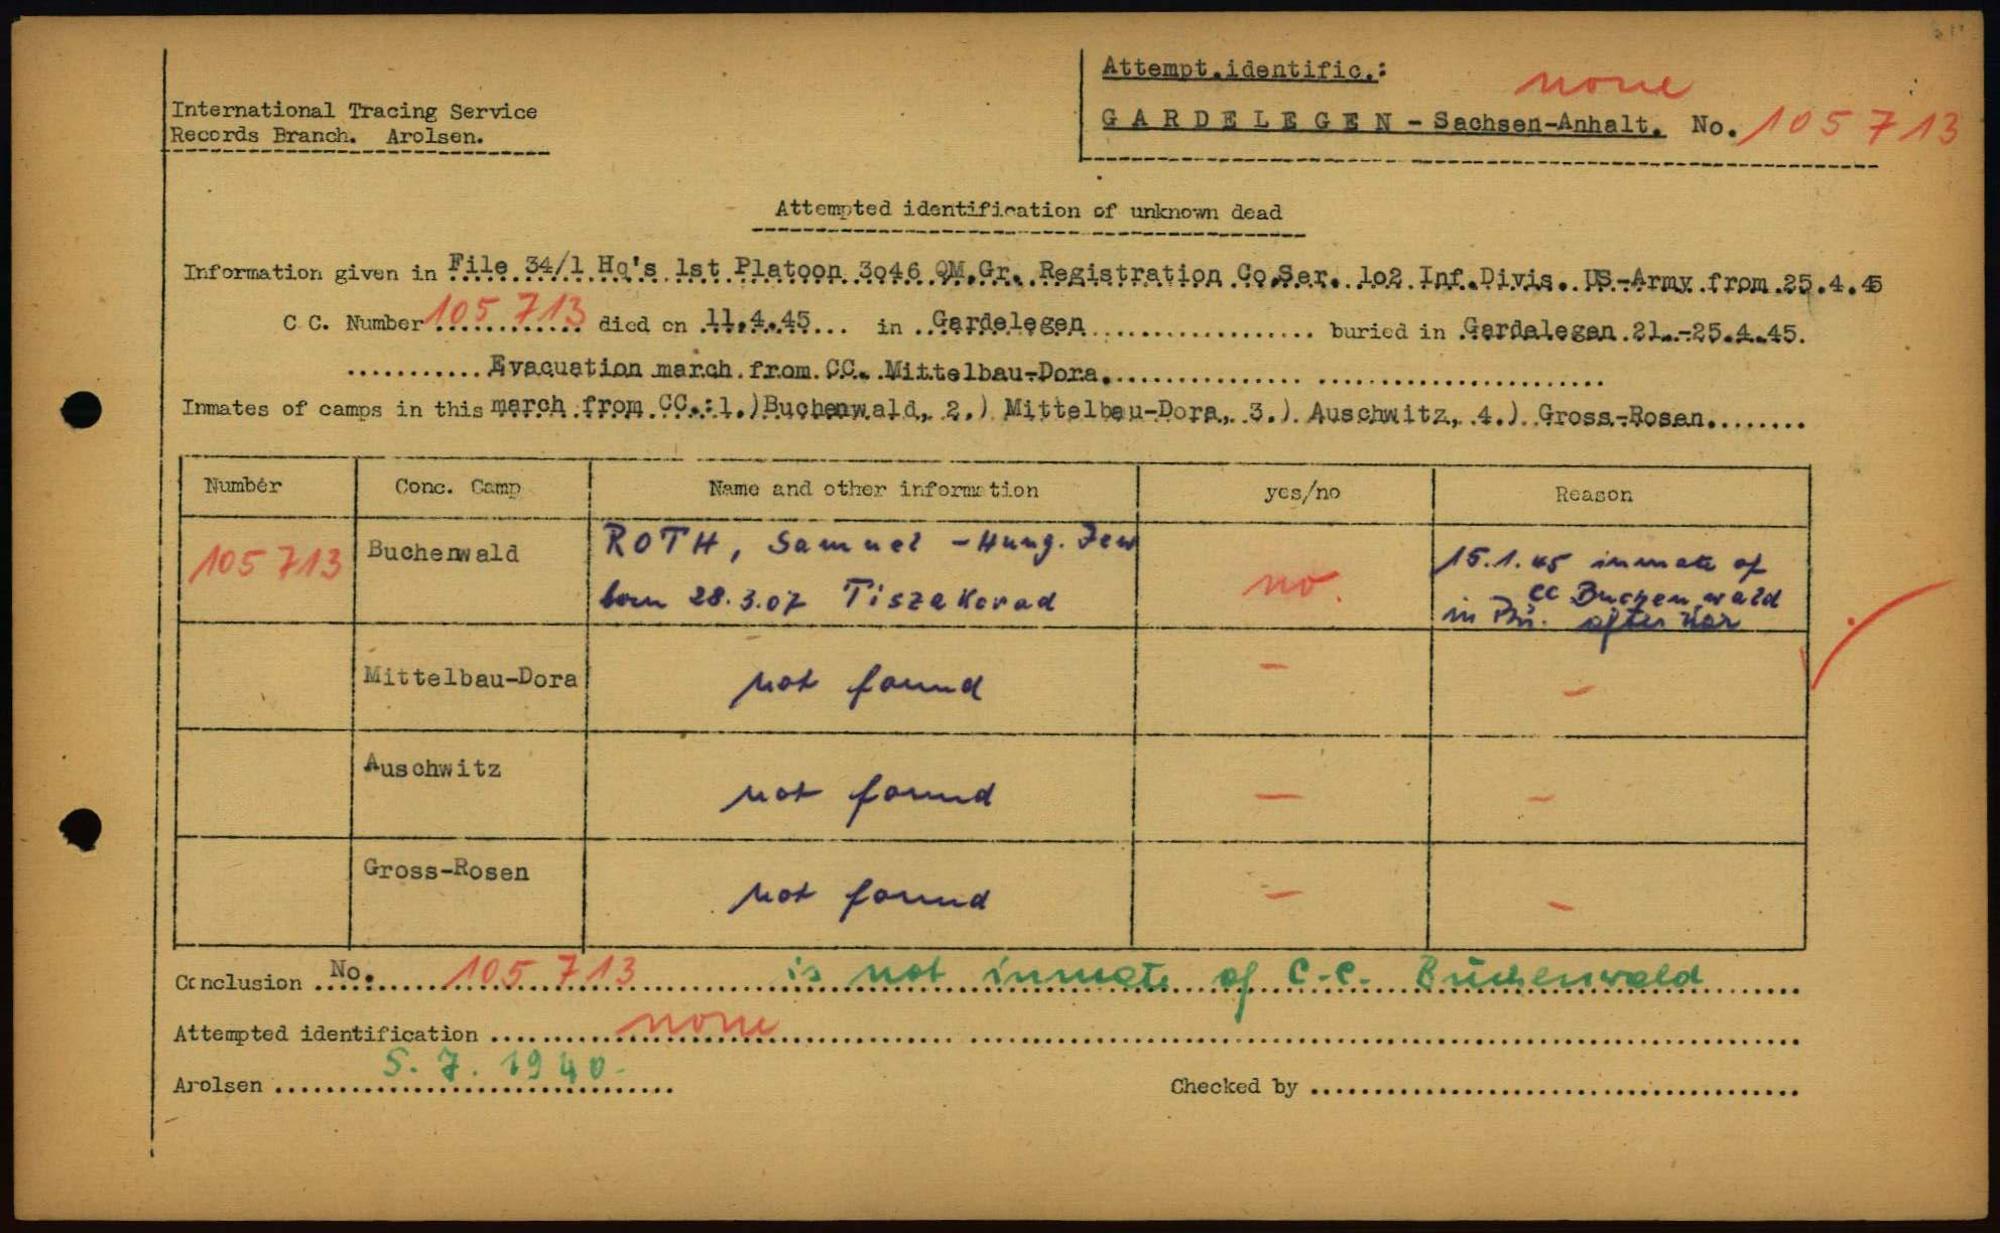 Attempt.identific.: none
International Tracing Service
Records Branch. Arolsen.
GARDELEGEN - Sachsen-Anhalt. No. 105 713
Attempted identification of unknown dead
Information given in File 34/1 Hq's 1st Platoon 3o46 QM.Gr. Registration Co.Ser. 1o2 Inf.Divis. US-Army from 25.4.45
C C. Number 105 713 died on 11.4.45 in Gardelegen buried in Gardelegen 21.-25.4.45.
Evacuation march from CC. Mittelbau-Dora.
Inmates of camps in this march from CC.:1.)Buchenwald, 2.) Mittelbau-Dora, 3.) Auschwitz, 4.) Gross-Rosen.
Number Conc. Camp Name and other information yes/no Reason
105 713 Buchenwald ROTH, Samuel - Hung. Jew
born 28.3.07 Tiszakorad no. 15.1.45 inmate of
CC Buchenwald
in Bu. after War
Mittelbau-Dora not found - -
Auschwitz not found - -
Gross-Rosen not found - -
Conclusion No. 105 713 is not inmate of C.C. Buchenwald
Attempted identification none
Arolsen 5.7.1940. Checked by